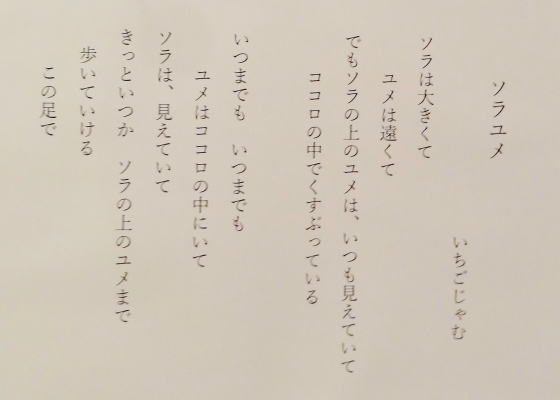 ソラユメ
いちごじゃむ
ソラは大きくて
ユメは遠くて
でもソラの上のユメは、いつも見えていて
ココロの中でくすぶっている
いつまでも　いつまでも
ユメはココロの中にいて
ソラは、見えていて
きっといつか　ソラの上のユメまで
歩いていける
この足で